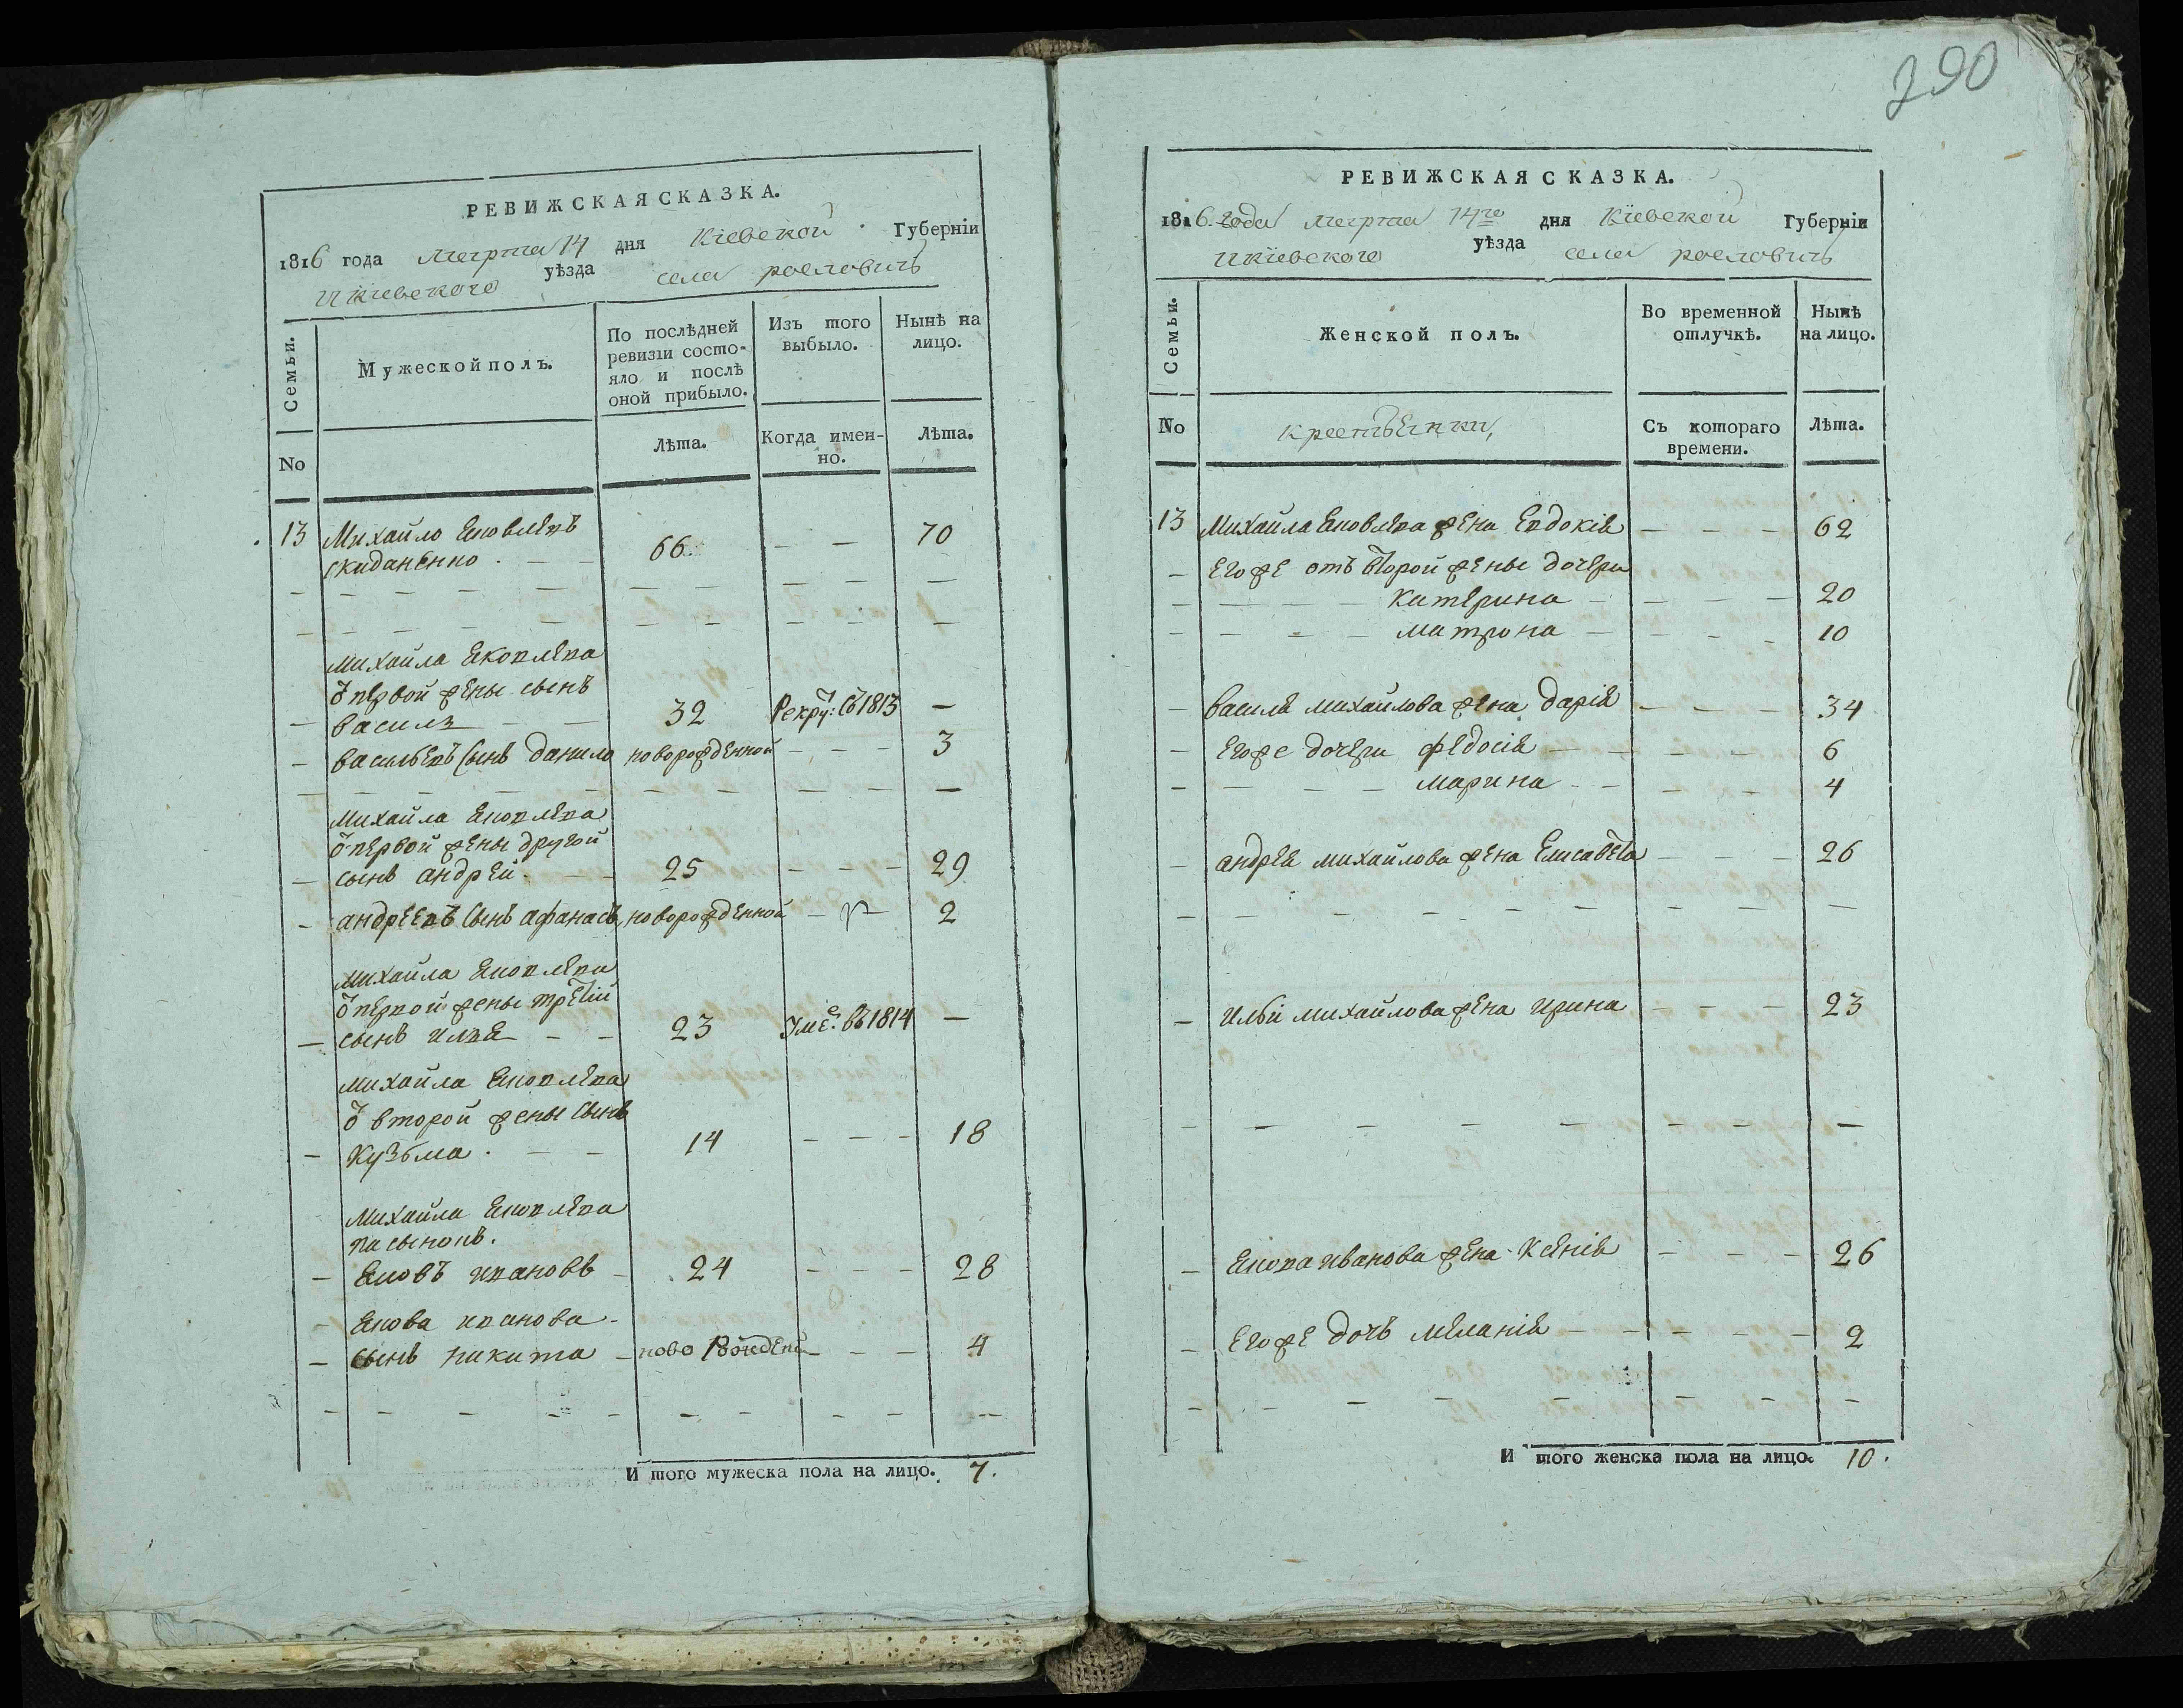 290
РЕВИЖСКАЯ СКАЗКА.
1816 года Марта 14 дня Кіевской Губерніи
И кіевского уѣзда села рославичь
Семьи.
Мужеской полъ.
По послѣдней ревизіи состояло и послѣ оной прибыло.
Изъ того выбыло.
Нынѣ на лицо.
No
Лѣта.
Когда именно.
Лѣта.
13 Михайло Яковлевъ
скиданенко 66 70
Михайла Яковлева
ѿ первой жены сынъ
василь 32 Рекру: въ 1813
васильевъ сынъ данило новорожденной 3
Михайла Яковлева
ѿ первой жены другой
сынъ андрей 25 29
андреевъ сынъ афанасъ новорожденной 2
Михайла Яковлева
ѿ первой жены третій
сынъ илья 23 Уме: въ 1814
Михайла Яковлева
ѿ второй жены сынъ
Кузьма 14 18
Михайла Яковлева
пасынокъ.
Яковъ ивановъ 24 28
Якова иванова
сынъ никита ново рожден 4
И того мужеска пола на лицо. 7.
РЕВИЖСКАЯ СКАЗКА.
1816. года марта 14го дня Кіевской Губерніи
И кіевского уѣзда села рославичь
Семьи.
Женской полъ.
Во временной отлучкѣ.
Нынѣ на лицо.
No
крестьянки,
Съ котораго времени.
Лѣта.
13 Михайла Яковлева жена Евдокія 62
Его же отъ второй жены дочери
Катерина 20
Матрона 10
василя михайлова жена дарія 34
Его же дочери федосія 6
Марина 4
андрея михайлова жена Елисавета 26
Ильи михайлова жена ирина 23
Якова иванова жена Ксенія 26
Его же дочь меланія 2
И того женска пола на лицо. 10.